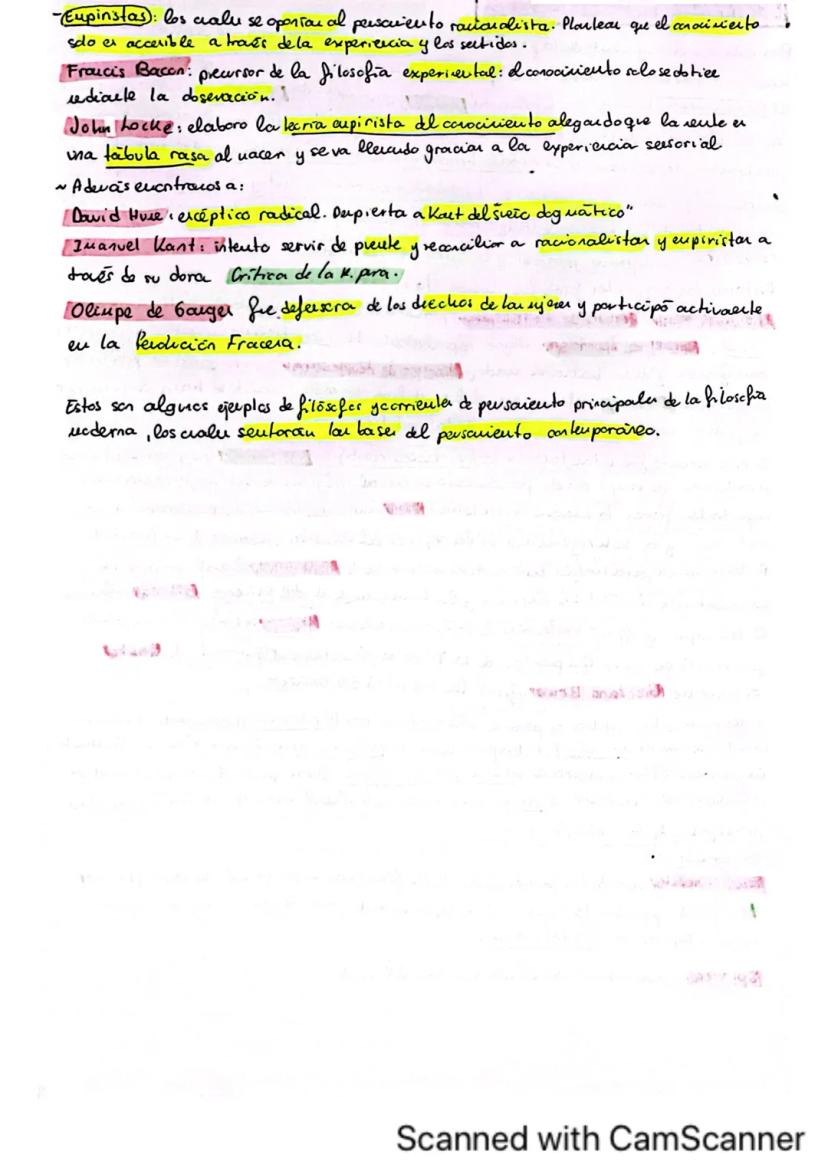 -Empiristas: los cuales se oponían al pensamiento racionalista. Plantean que el conocimiento
solo es accesible a través de la experiencia y los sentidos.
Francis Bacon: precursor de la filosofía experimental: el conocimiento solo se obtiene
mediante la observación.
John Locke: elaboro la teoría empirista del conocimiento alegando que la mente es
una tábula rasa al nacer y se va llenando gracias a la experiencia sensorial.
~ Además encontramos a:
David Hume: escéptico radical. Despierta a Kant del sueño dogmático"
Imanuel Kant: intento servir de puente y reconciliar a racionalistas y empiristas a
través de su obra Crítica de la R. pura.
Olimpe de Gouges fue defensora de los derechos de las mujeres y participó activamente
en la Revolución Francesa.
Estos son algunos ejemplos de filósofos y corrientes de pensamiento principales de la filosofía
moderna, los cuales sentarán las bases del pensamiento contemporáneo.
Scanned with CamScanner